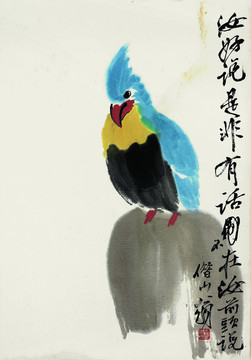 汝好说是非有话不在汝前頭说
借山翁